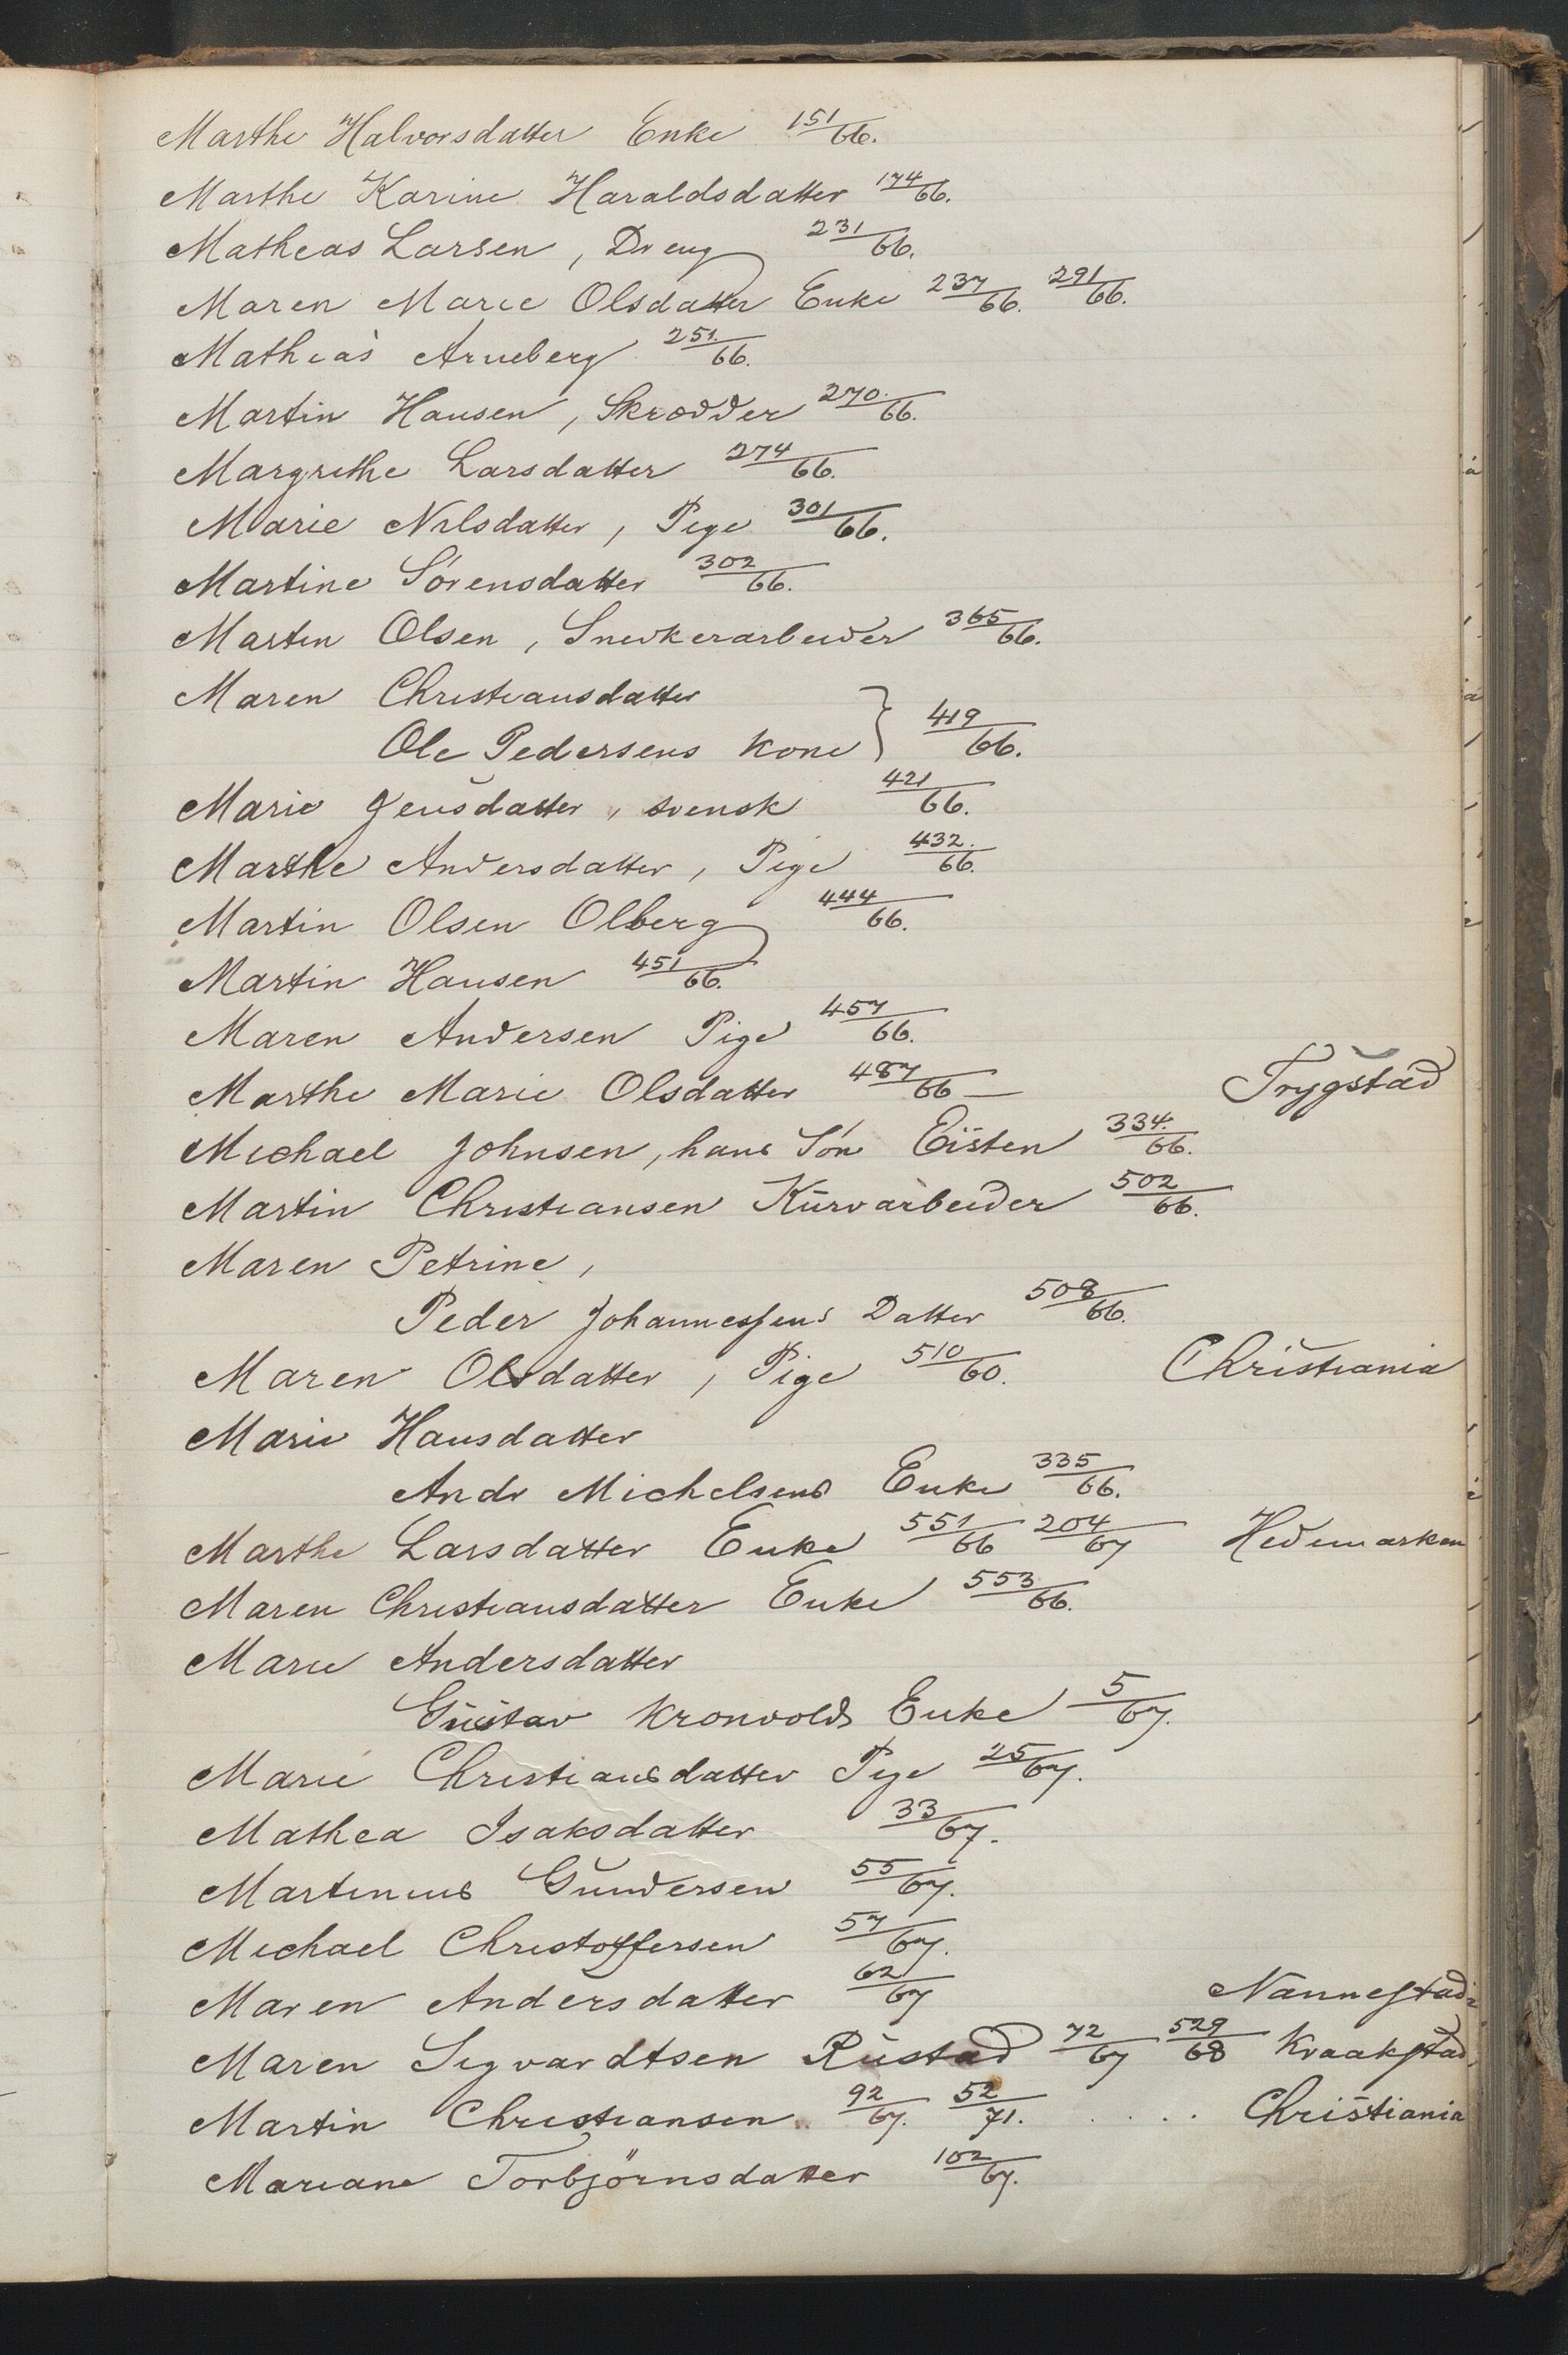 Marthe Halvorsdatter Enke 151/66.
Marthe Karine Haraldsdatter 174/66.
Matheas Larsen, Dreng 231/66.
Maren Marie Olsdatter Enke 237/66. 291/66.
Mathias Arneberg 251./66.
Martin Hansen, Skrædder 270./66.
Margrethe Larsdatter 274/66.
Marie Nilsdatter, Pige 301/66.
Martine Sörensdatter 302/66.
Martin Olsen, Snedkerarbeider 365/66.
Maren Christiansdatter
Ole Pedersens Kone } 419/66.
Marie Jensdatter, svensk 421/66.
Marthe Andersdatter, Pige 432./66.
Martin Olsen Olberg 444/66.
Martin Hansen 451/66.
Maren Andersen Pige 457/66.
Marthe Marie Olsdatter 487/66 — Trygstad
Michael Johnsen, hans Sön Eisten 334./66.
Martin Christiansen Kurvarbeider 502/66.
Maren Petrine,
Peder Johannessens Datter 508/66.
Maren Olsdatter, Pige 510/60. Christiania
Marie Hansdatter
Andr Michelsens Enke 335/66.
Marthe Larsdatter Enke 551/66 204/67 Hedemarken
Maren Christiansdatter Enke 553/66.
Marie Andersdatter
Gustav Kronvolds Enke 5/67.
Marie Christiansdatter Pige 25/67.
Mathea Isaksdatter 33/67.
Martinius Gundersen 55/67.
Michael Christoffersen 57/67.
Maren Andersdatter 62/67 Nannestad
Maren Sigvardtsen Rustad 72/67 529/68 Kraakstad
Martin Christiansen 92/67. 52/71. .... Christiania
Mariane Torbjörnsdatter 102/67.